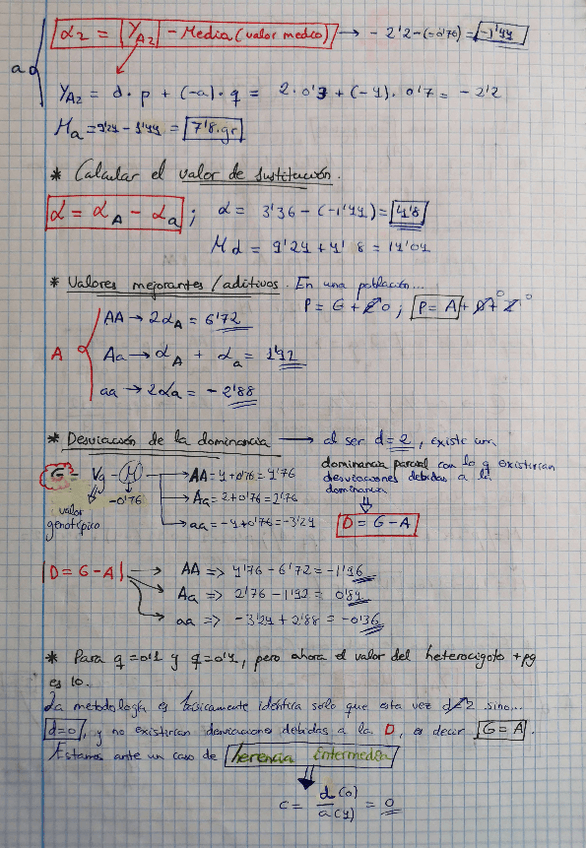 α₂ = Y_A2 - Media (valor medio) → - 2'2 - (-0'76) = -1'44
aα
Y_A2 = d · p + (-a) · q = 2 · 0'3 + (-4) · 0'7 = - 2'2
Ma = 9'24 - 1'44 = 7'8 gr
* Calcular el valor de sustitución.
α = α_A - α_a ; α = 3'36 - (-1'44) = 4'8
Md = 9'24 + 4'8 = 14'04
* Valores mejorantes / aditivos. En una población...
P = G + E 0 ; P = A + D + I 0
A
AA → 2α_A = 6'72
Aa → α_A + α_a = 1'92
aa → 2αa = - 2'88
* Desviación de la dominancia → al ser d = 2, existe una
dominancia parcial con lo q existirían
desviaciones debidas a la
dominancia
D = G - A
G = Vg - M
valor
genotípico
-0'76
AA = 4 + 0'76 = 4'76
Aa = 2 + 0'76 = 2'76
aa = -4 + 0'76 = -3'24
D = G - A
AA => 4'76 - 6'72 = -1'96
Aa => 2'76 - 1'92 = 0'84
aa => -3'24 + 2'88 = -0'36
* Para q = 0'1 y q = 0'4, pero ahora el valor del heterocigoto + pg
es 10.
La metodología es básicamente idéntica solo que esta vez d≠2 sino...
d=0, y no existirían desviaciones debidas a la D, es decir G = A.
Estamos ante un caso de herencia Entermedia
c = d(0) / a(4) = 0